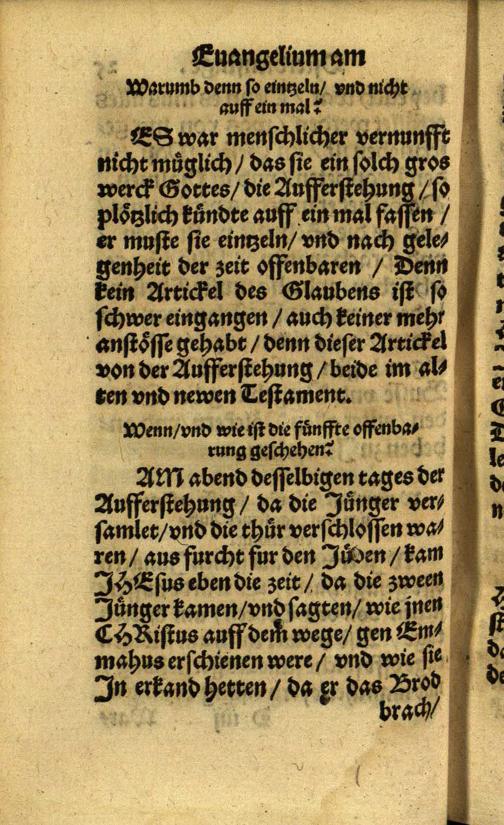 Euangelium am
Warumb denn so eintzeln/ vnd nicht
auff ein mal?
ES war menschlicher vernunfft
nicht müglich / das sie ein solch gros
werck Gottes/ die Aufferstehung / so
plötzlich kündte auff ein mal fassen /
er muste sie eintzeln/ vnd nach gele⸗
genheit der zeit offenbaren / Denn
kein Artickel des Glaubens ist so
schwer eingangen / auch keiner mehr
anstösse gehabt / denn dieser Artickel
von der Aufferstehung / beide im al⸗
ten vnd newen Testament.
Wenn/ vnd wie ist die fünffte offenba⸗
rung geschehen?
AM abend desselbigen tages der
Aufferstehung / da die Jünger ver⸗
samlet/ vnd die thür verschlossen wa⸗
ren / aus furcht fur den Jüden / kam
JHEsus eben die zeit / da die zween
Jünger kamen/ vnd sagten/ wie jnen
CHRistus auff dem wege/ gen Em⸗
mahus erschienen were / vnd wie sie
In erkand hetten / da er das Brod
brach/